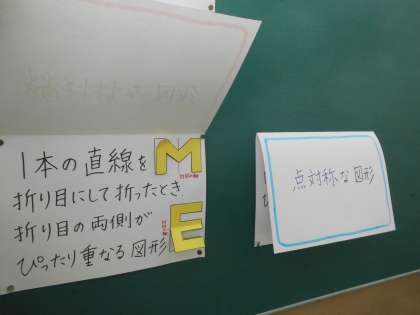 1本の直線を
折り目にして折ったとき、
折り目の両側が
ぴったり重なる図形
M
E
点対称な図形